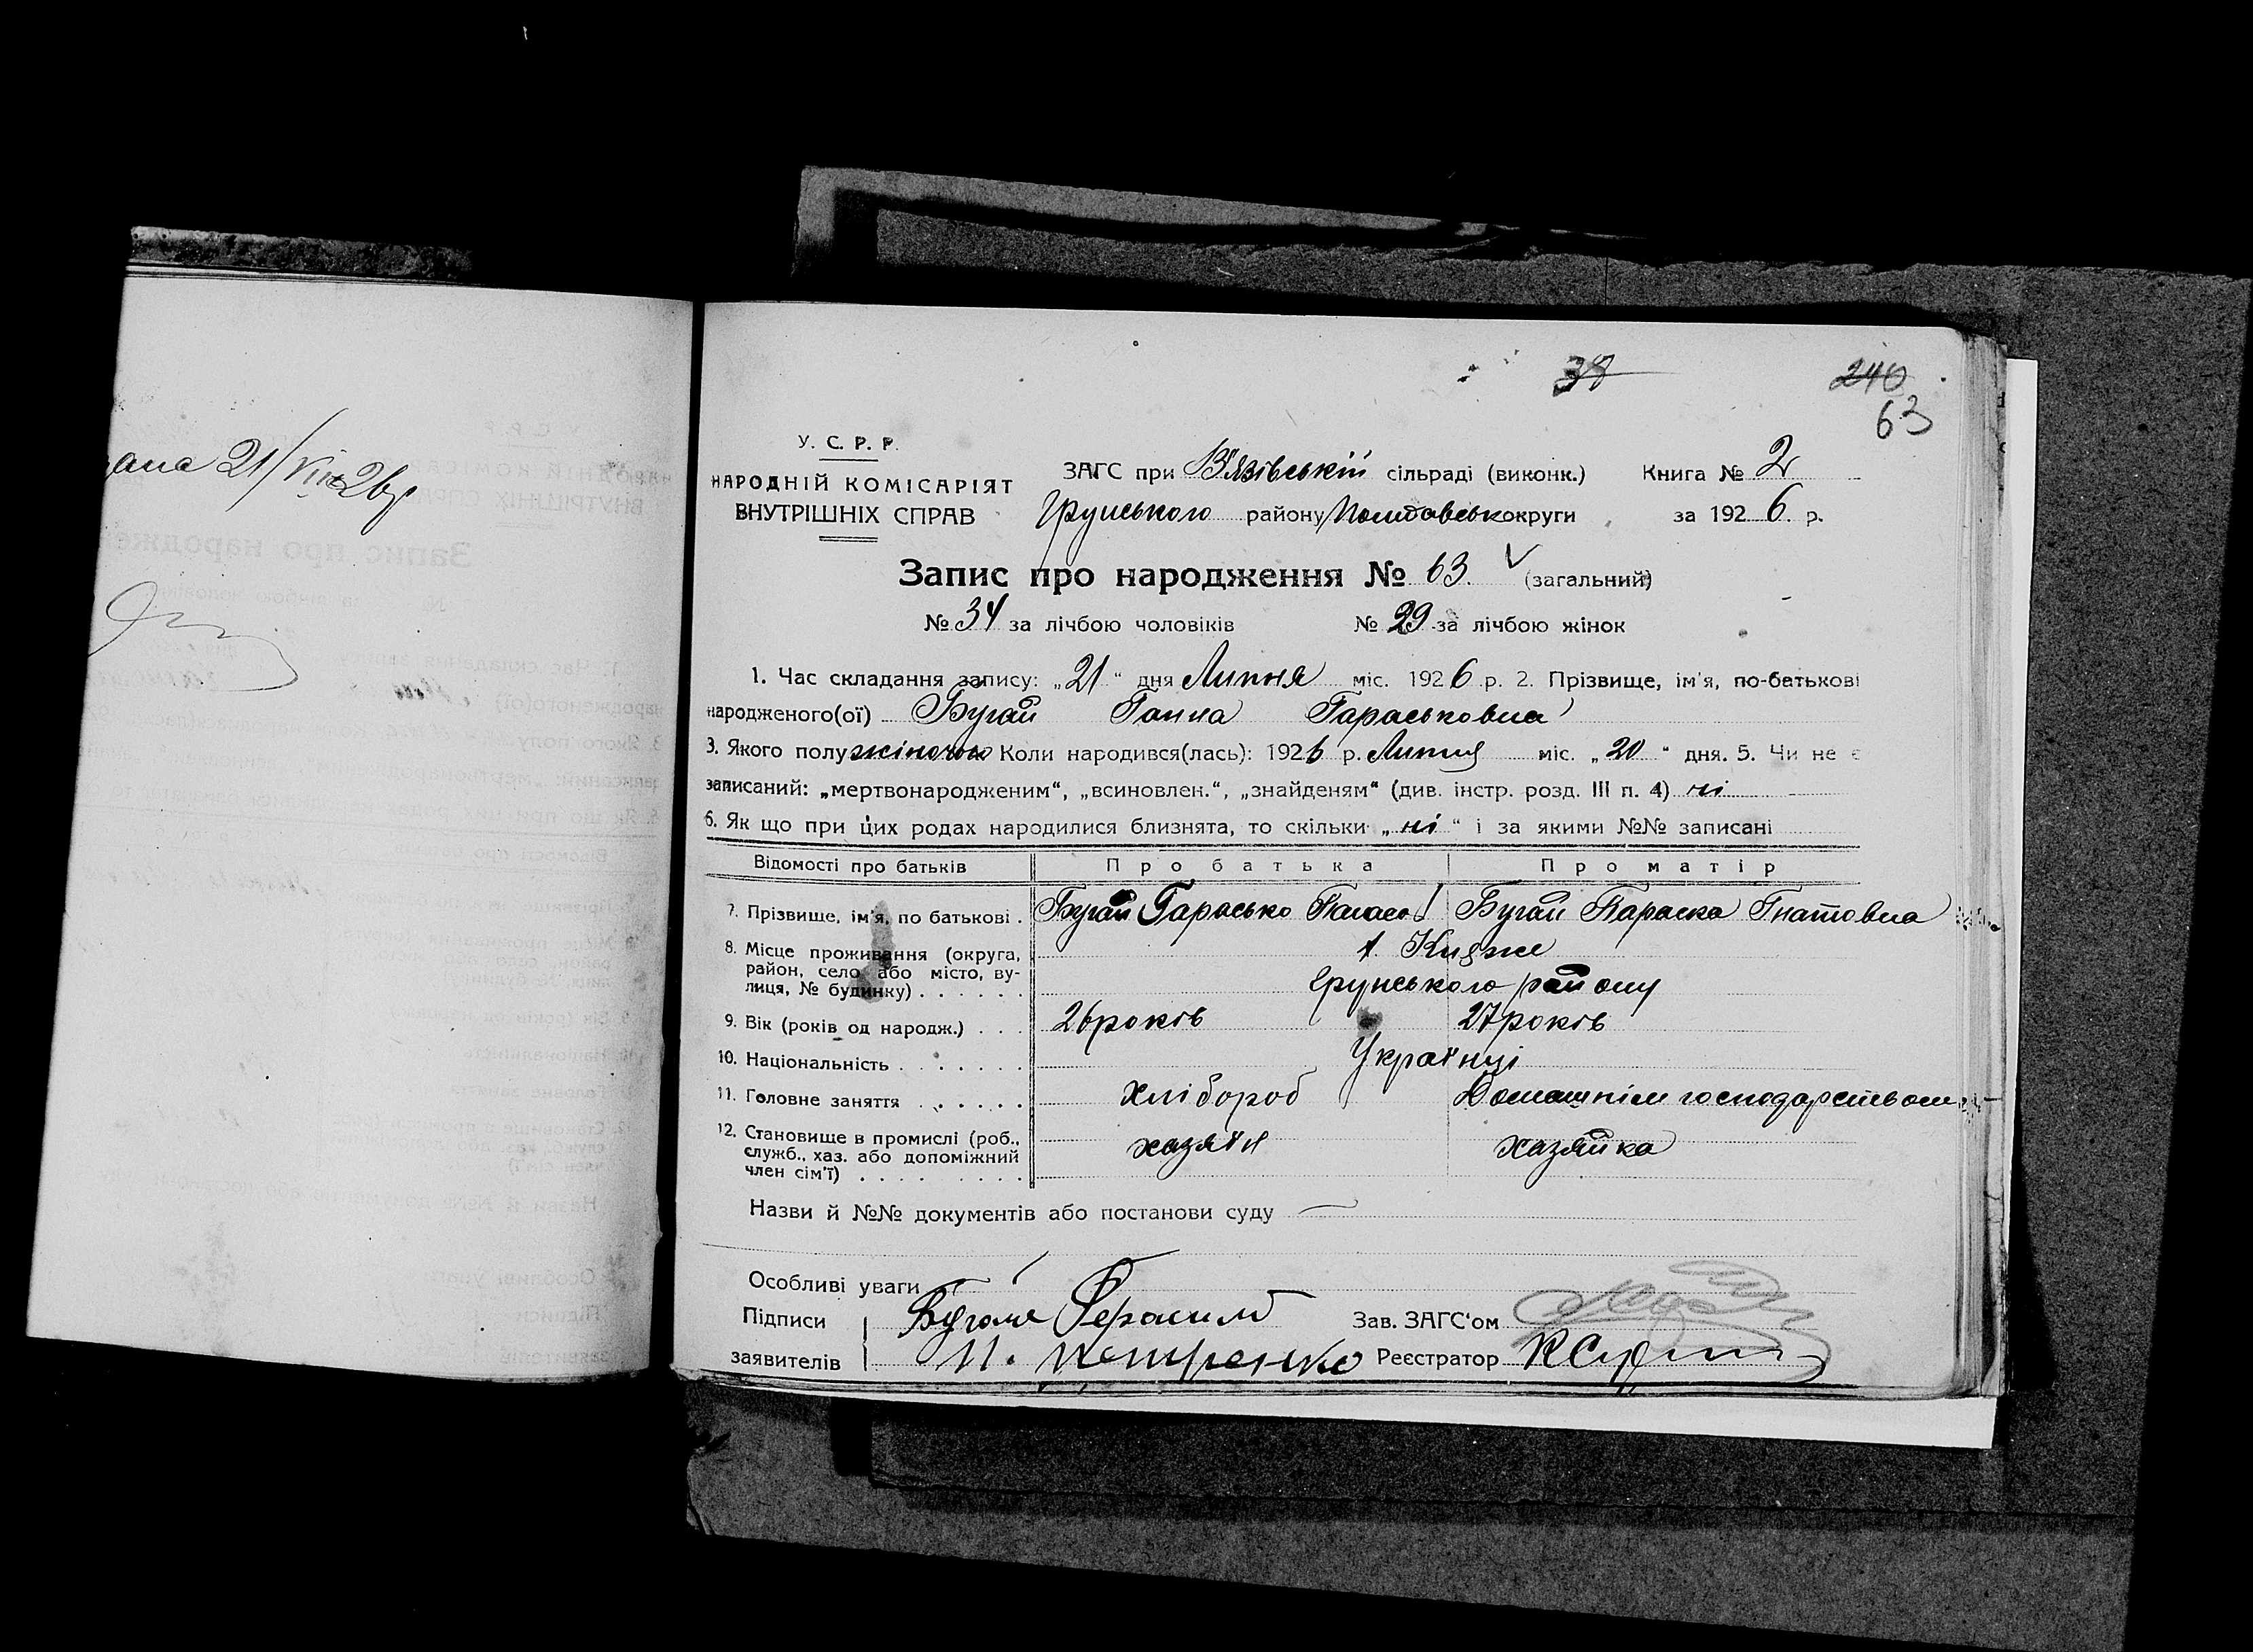 21/VII 26 р
38
240
63
У. С. Р. Р.
НАРОДНІЙ КОМІСАРІЯТ
ВНУТРІШНІХ СПРАВ
ЗАГС при В'язівській сільраді (виконк.) Книга № 2
Грунського району Полтавськ округи за 1926 р.
Запис про народження № 63 (загальний)
№ 34 за лічбою чоловіків № 29 за лічбою жінок
1. Час складання запису: „21“ дня Липня міс. 1926 р. 2. Прізвище, ім'я, по-батькові
народженого(ої) Бугай Ганна Гараськовна
3. Якого полу жіночого Коли народився(лась): 1926 р. Липня міс. „20“ дня. 5. Чи не є
записаний: „мертвонародженим“, „всиновлен.“, „знайденям“ (див. інстр. розд. III п. 4) ні
6. Як що при цих родах народилися близнята, то скільки „ні“ і за якими №№ записані
Відомості про батьків Про батька Про матір
7. Прізвище, ім'я, по батькові . Бугай Гарасько Бугай Параска Гнатовна
8. Місце проживання (округа, х. Княже
район, село або місто, ву-
лиця, № будинку) . . . . . . Грунського району
9. Вік (років од народж.) . . . 26 років 27 років
10. Національність . . . . . . . Українці
11. Головне заняття . . . . . . Хлібороб Домашнім господарством
12. Становище в промислі (роб.,
служб., хаз. або допоміжний хазяїн хазяйка
член сім'ї) . . . . . . . . .
Назви й №№ документів або постанови суду
Особливі уваги
Підписи Герасим Зав. ЗАГС'ом
заявителів П. Петренко Реєстратор